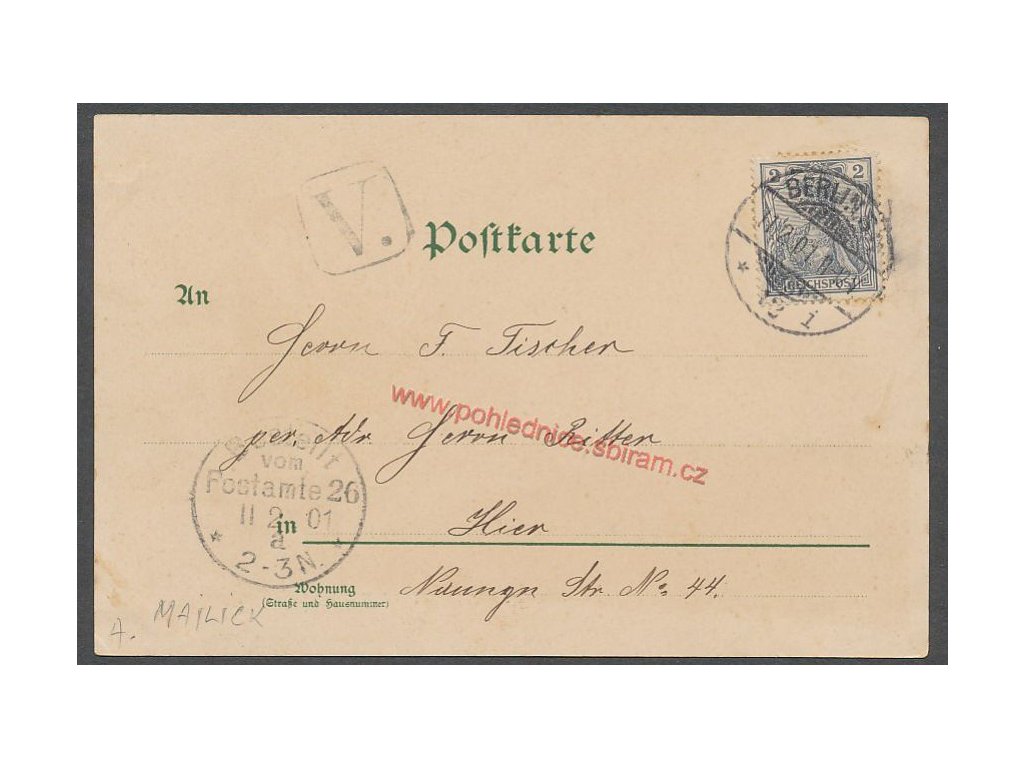 V.
Postkarte
2 2
BERLIN.S
REICHSPOST
An
Herrn F. Fischer
www.pohlednice.sbiram.cz
per. Adr. Herrn Ritter
Bestellt
vom
Postamte 26
11 2 01
a
2-3N.
in Hier
Wohnung
(Straße und Hausnummer)
Naunyn Str. No: 44.
MAILICK
A.